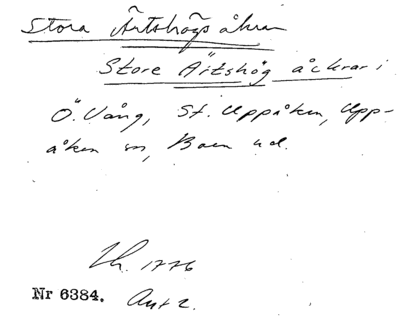 Stora Ärtshögs åkrar
Store Ärtshög åckrar i
Ö. Vång, St. Uppåkra, Upp-
åkra sn, Bara hd.
Lh. 1776
Nr 6384. Akt 2.